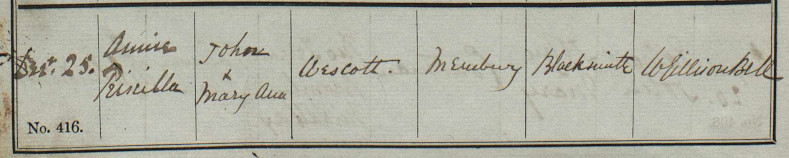 Decr. 25.
Annie
Priscilla
John
&
Mary Ann
Wescott.
Membury
Blacksmith
W Gillison Bell
No. 416.